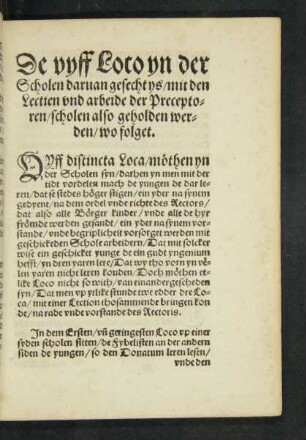 De vyff Loco yn der
Scholen daruan gesecht ys/mit den
Lectien vnd arbeide der Precepto-
ren/scholen also geholden wer-
den/wo folget.
VYff distincta Loca/möthen yn
der Scholen syn/dathen yn men mit der
tidt vordelen mach de yungen de dar le-
ren/dat se stedes höger stigen/ein yder na synem
gedyent/na dem ordel vnde richte des Rectors/
dat also alle Börger kinder/vnde alle de hyr
frömde werden gesandt/ein yder na synem vor-
stande/vnde begripliche it vorsorget werden mit
geschickeden Schole arbeidern/Dat mit solcker
wise ein geschicker yunge de ein gudt yngenium
hefft/yn dren yaren lere/Dat wy tho vorn yn vë-
len yaren nicht leren konden/Doch möthen et-
like Loco nicht so with/van einander gescheden
syn/Dat men vp ytlike stunde twe edder dre Lo-
ca/mit einer Lection thosammende bringen kon
de/na rade vnde vorstande des Rectoris.
In dem Ersten/vñ geringesten Loco vp einer
syden scholen sitten/de Fybelisten an der andern
siden de yungen/so den Donatum leren lesen/
vnde den